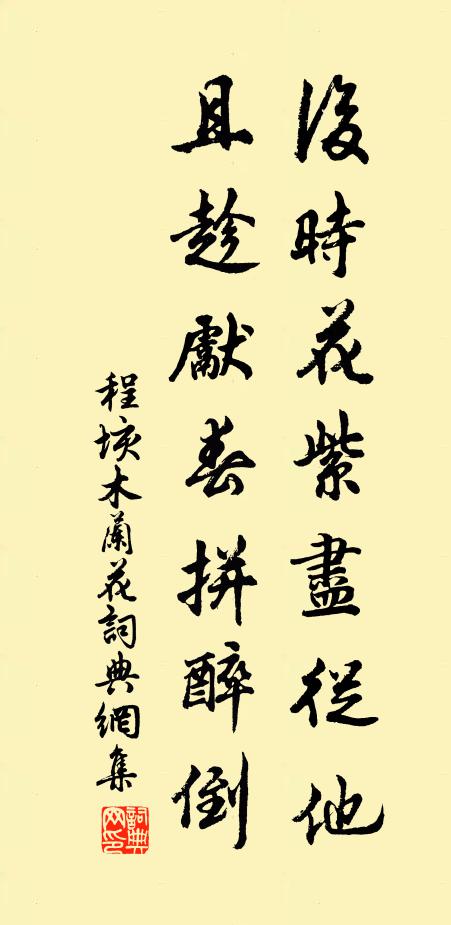 後時花紫盡從他
且趁獻春拼醉倒
程垓木蘭花詞典網集
詞典網印